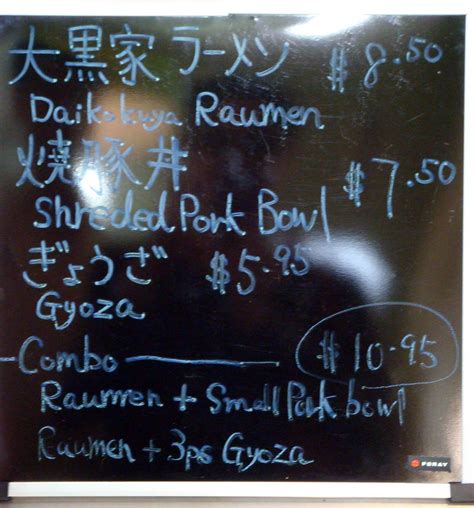 大黒家 ラーメン $8.50
Daikokuya Raumen
焼豚丼 $7.50
Shreded Pork Bowl
ぎょうざ $5.95
Gyoza
Combo $10.95
Raumen + Small Pork bowl
Raumen + 3ps Gyoza
FORAY